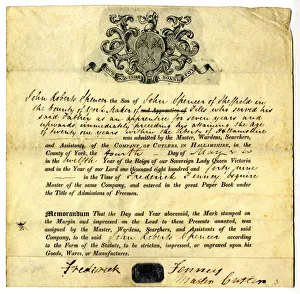 John Roberts Spencer the Son of John Spencer of Sheffield in
the County of York Maker of Files who served his
said Father as an apprentice for seven years and
upwards immediately preceding his attaining the Age
of twenty one years within the Liberty of Hallamshire
was admitted by the Master, Wardens, Searchers,
and Assistants, of the COMPANY OF CUTLERS IN HALLAMSHIRE, in the
County of York, the fourth Day of May
in the twelfth Year of the Reign of our Sovereign Lady Queen Victoria
and in the Year of our Lord one thousand eight hundred and forty nine
in the Time of Frederick Fenney Esquire
Master of the same Company, and entered in the great Paper Book under
the Title of Admissions of Freemen.
Memorandum That the Day and Year abovesaid, the Mark stamped on
the Margin and impressed on the Lead to these Presents annexed, was
assigned by the Master, Wardens, Searchers, and Assistants of the said
Company, to the said John Roberts Spencer according
to the Form of the Statute, to be stricken, impressed, or engraved upon his
Goods, Wares, or Manufactures.
Frederick Fenney
Master Cutler